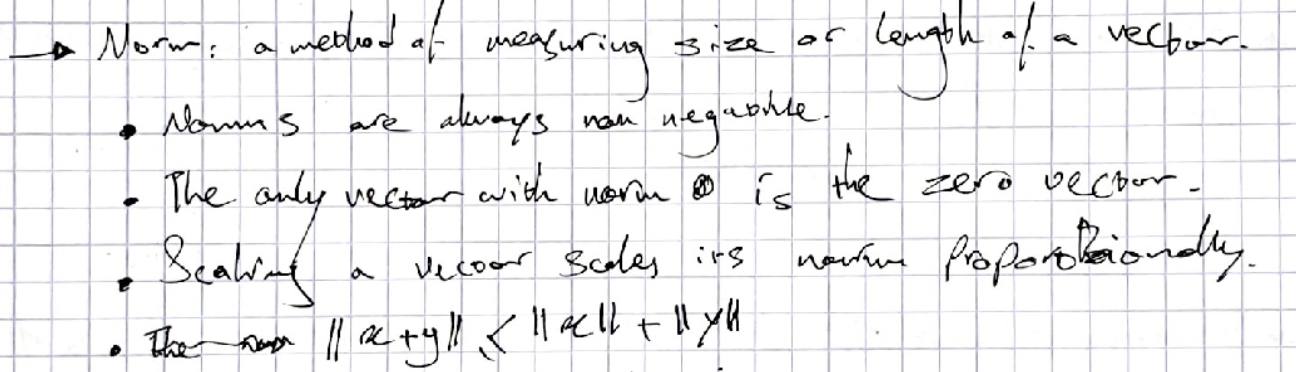 → Norm: a method of measuring size or length of a vector.
• Norms are always non negative.
• The only vector with norm 0 is the zero vector.
• Scaling a vector scales its norm proportionally.
• The ‖x+y‖ ≤ ‖x‖ + ‖y‖